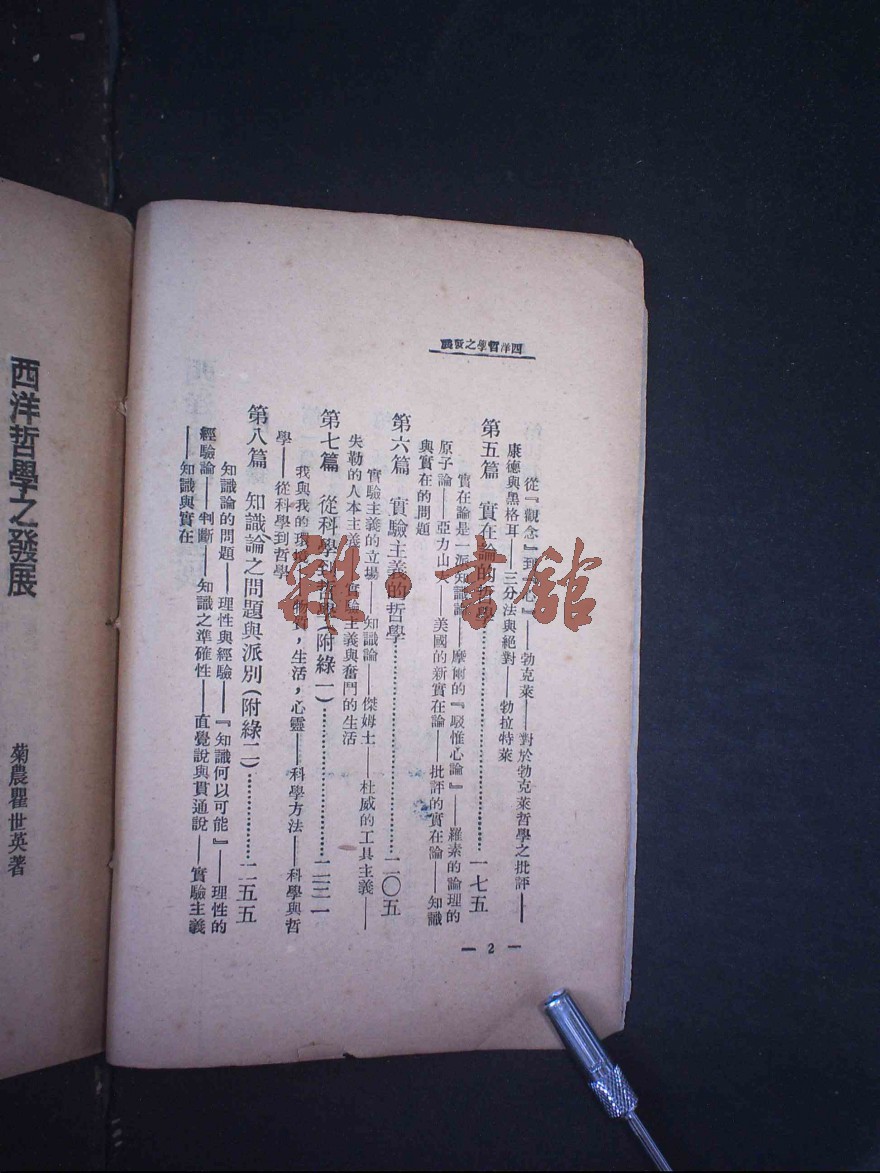 西洋哲學之發展
從『觀念』到『心』——勃克萊——對於勃克萊哲學之批評——
康德與黑格耳——三分法與絕對——勃拉特萊
第五篇 實在論的哲學……………一七五
實在論是一派知識論——摩爾的『駁惟心論』——羅素的論理的
原子論——亞力山大——美國的新實在論——批評的實在論——知識
與實在的問題
第六篇 實驗主義的哲學……………二〇五
實驗主義的立場——知識論——傑姆士——杜威的工具主義——
失勒的人本主義——實驗主義與奮鬥的生活
第七篇 從科學到哲學(附綠一)……………二三一
我與我的環境——物質，生活，心靈——科學方法——科學與哲
學——從科學到哲學
第八篇 知識論之問題與派別(附綠二)……………二五五
知識論的問題——理性與經驗——『知識何以可能』——理性的
經驗論——判斷——知識之準確性——直覺說與貫通說——實驗主義
——知識與實在
— 2 —
西洋哲學之發展
菊農瞿世英著
雜·書館